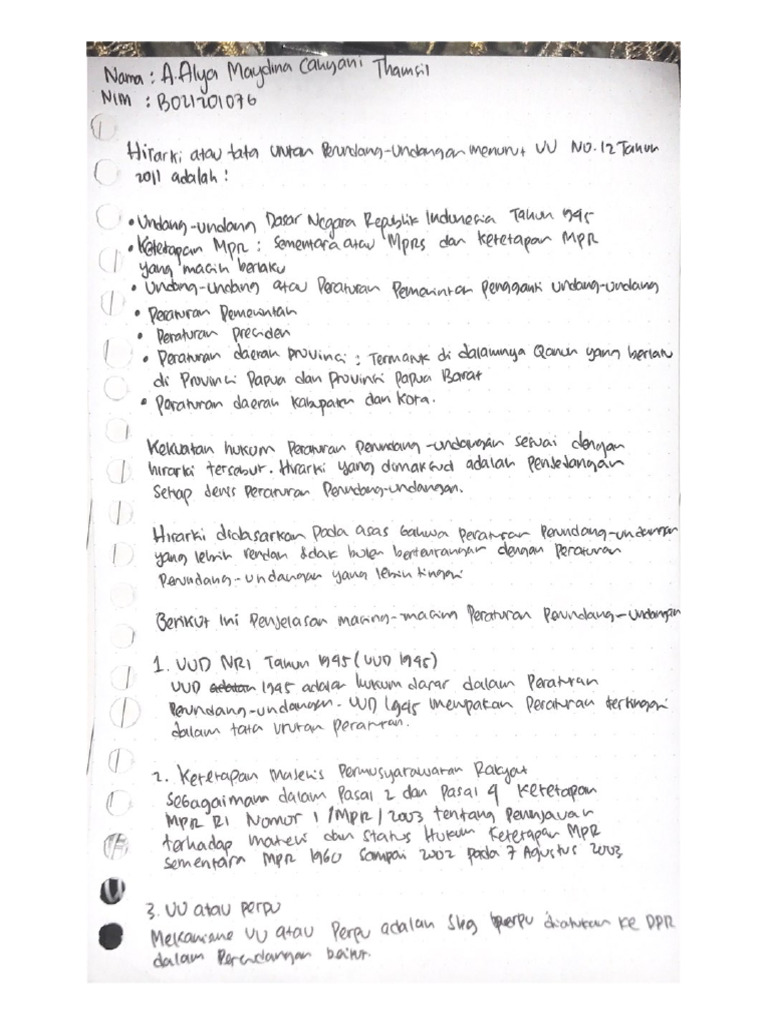 Nama : A. Alya Maydina Cahyani Thamsil
NIM : B021201076
Hirarki atau tata urutan Perundang-undangan menurut UU No. 12 Tahun
2011 adalah :
• Undang-undang Dasar Negara Republik Indonesia Tahun 1945
• Ketetapan MPR : Sementara atau MPRS dan Ketetapan MPR
yang masih berlaku
• Undang-undang atau Peraturan Pemerintah Pengganti undang-undang
• Peraturan Pemerintah
• Peraturan Presiden
• Peraturan daerah provinsi : Termasuk di dalamnya Qanun yang berlaku
di Provinsi Papua dan Provinsi Papua Barat
• Peraturan daerah Kabupaten dan Kota.
Kekuatan hukum Peraturan perundang-undangan sesuai dengan
hirarki tersebut. Hirarki yang dimaksud adalah Penjejangan
Setiap Jenis Peraturan Perundang-undangan.
Hirarki didasarkan pada asas bahwa peraturan Perundang-undangan
yang lebih rendah tidak boleh bertentangan dengan Peraturan
Perundang-undangan yang lebih tinggi
Berikut Ini Penjelasan masing-masing Peraturan Perundang-undangan
1. UUD NRI Tahun 1945 (UUD 1945)
UUD 1945 adalah hukum dasar dalam Peraturan
Perundang-undangan. UUD 1945 merupakan Peraturan tertinggi
dalam tata urutan Peraturan.
2. Ketetapan Majelis Permusyarawaran Rakyat
Sebagaimana dalam Pasal 2 dan Pasal 4 Ketetapan
MPR RI Nomor 1/MPR/2003 tentang Peninjauan
terhadap materi dan status Hukum Ketetapan MPR
sementara MPR 1960 Sampai 2002 pada 7 Agustus 2003
3. UU atau perpu
Mekanisme UU atau Perpu adalah sbg perpu diajukan ke DPR
dalam Persidangan berikut.